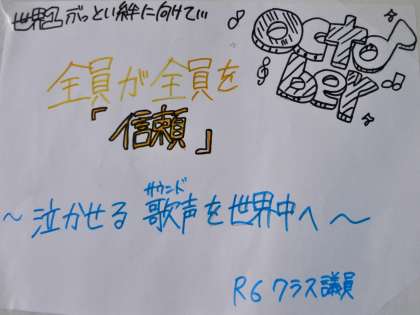 世界一ぶっとい絆に向けて…
octo
ber
全員が全員を
「信頼」
サウンド
～泣かせる歌声を世界中へ～
R6 クラス議員